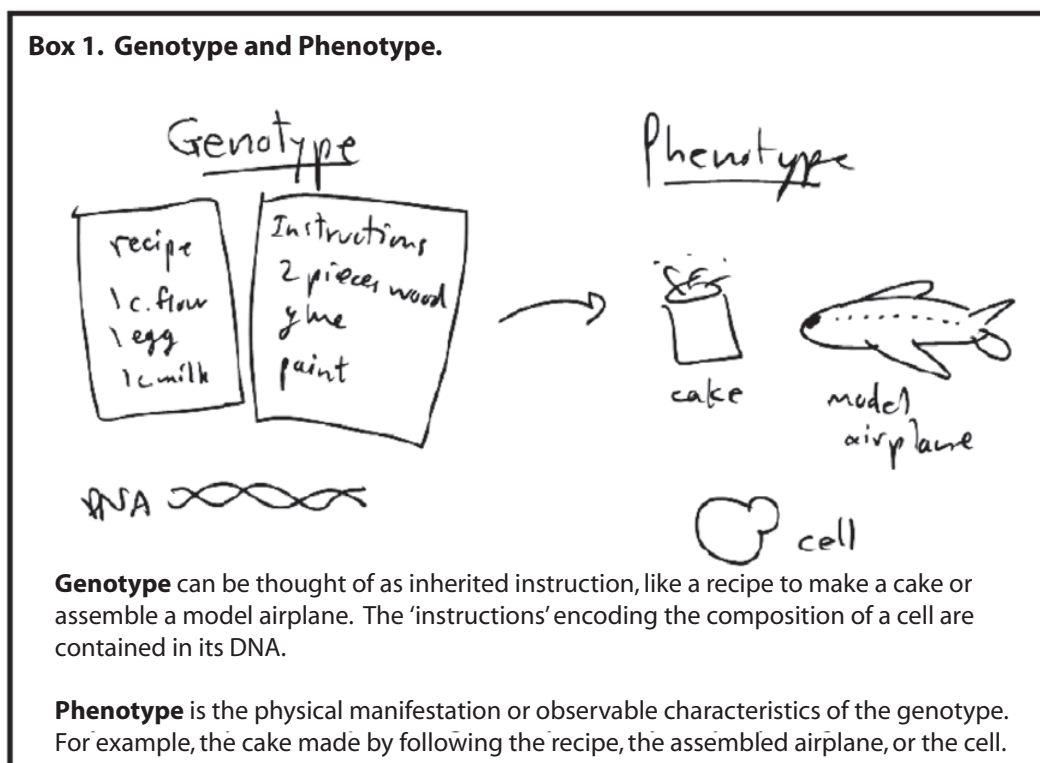 Box 1. Genotype and Phenotype.
Genotype
Phenotype
recipe
1 c. flour
1 egg
1 c milk
Instructions
2 pieces wood
glue
paint
cake
model
airplane
DNA
cell
Genotype can be thought of as inherited instruction, like a recipe to make a cake or
assemble a model airplane. The ‘instructions’ encoding the composition of a cell are
contained in its DNA.
Phenotype is the physical manifestation or observable characteristics of the genotype.
For example, the cake made by following the recipe, the assembled airplane, or the cell.